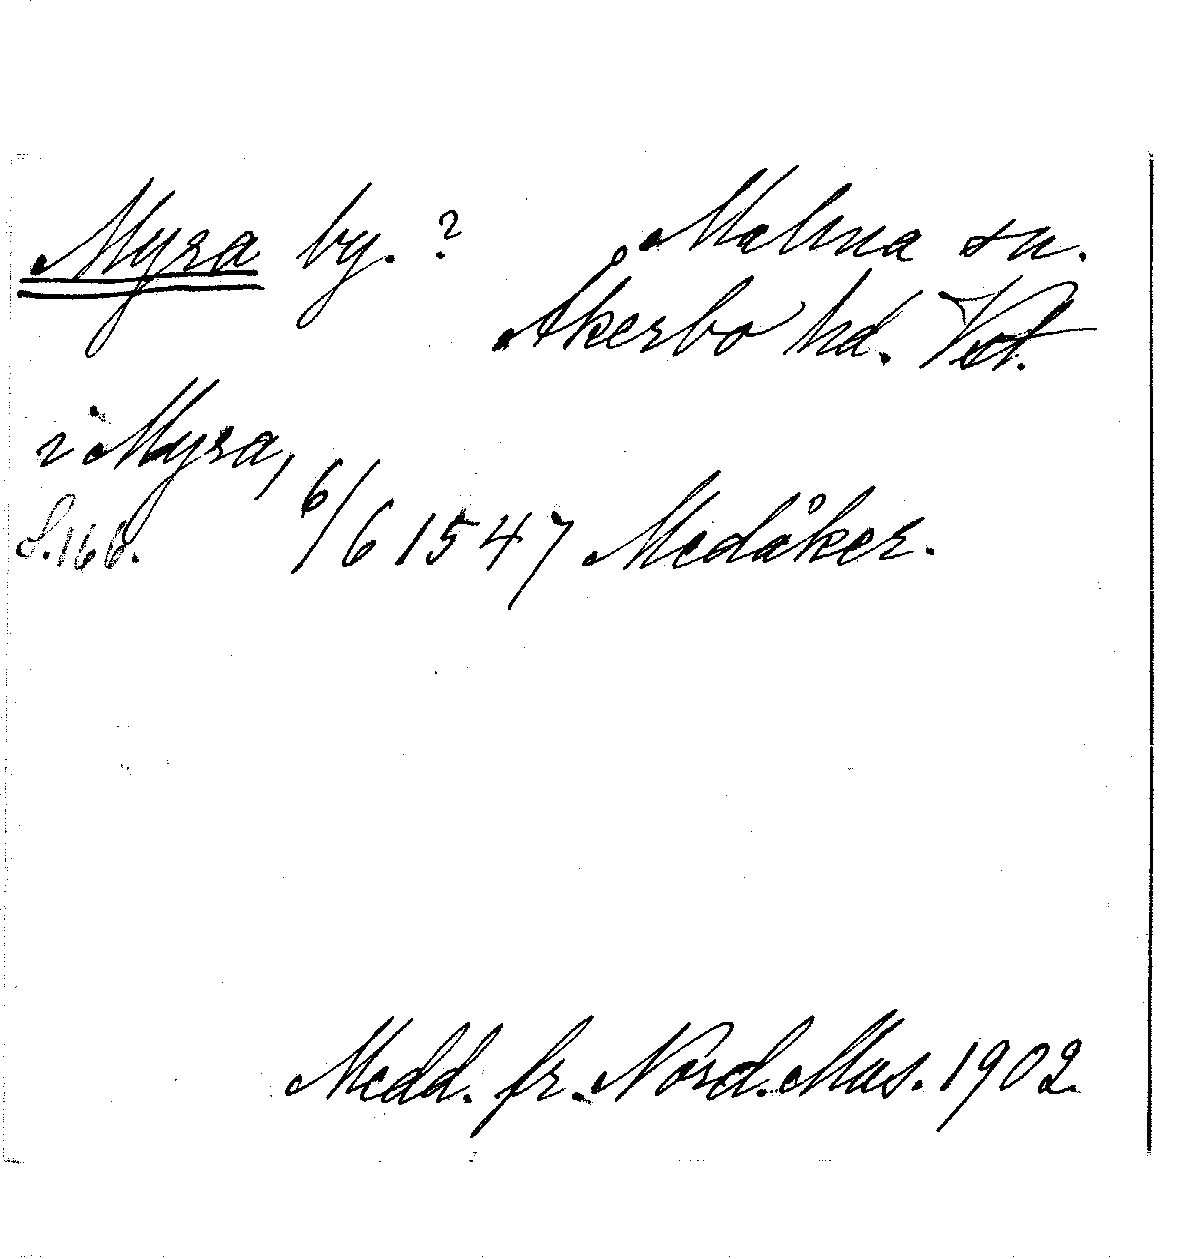 Myra by. ? Malma sn.
Åkerbo hd. Vstl.
i Myra,
S. 166. 6/6 1547 Medåker.
Medd. fr. Nord. Mus. 1902.